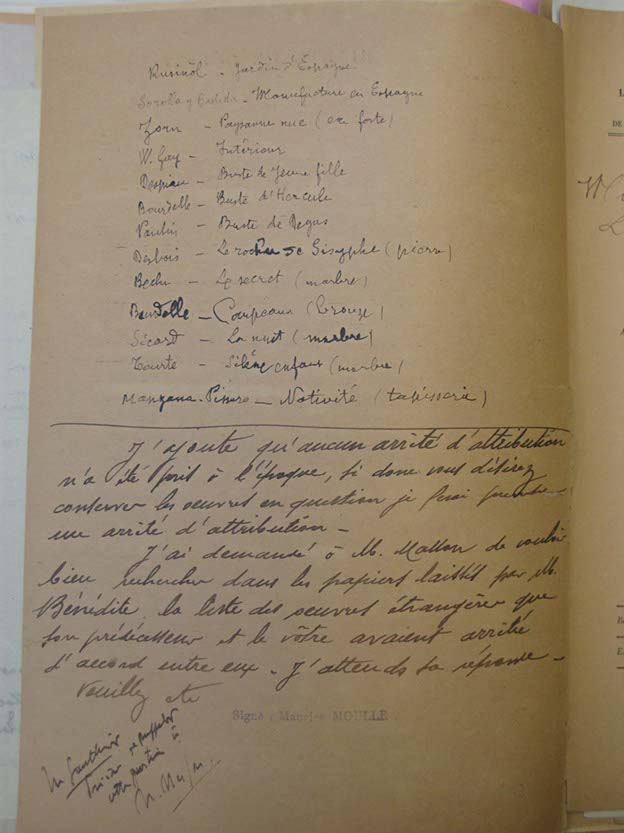 Rusinõl - Jardin d'Espagne
Sorolla y Bastida - Manufacture en Espagne
Zorn - Paysanne nue (eau forte)
W. Gay - Intérieur
Despiau - Buste de Jeune fille
Bourdelle - Buste d'Hercule
Paulin - Buste de Degas
Desbois - Le rocher de Sisyphe (pierre)
- Le secret (marbre)
Bourdelle - Carpeaux (bronze)
Sicard - La nuit (marbre)
- Silène enfant (marbre)
Manzana-Pissaro - Nativité (tapisserie)
J'ajoute qu'aucun arrêté d'attribution
n'a été pris à l'époque, si donc vous désirez
conserver les oeuvres en question je ferai prendre
un arrêté d'attribution -
J'ai demandé à M. Masson de vouloir
bien rechercher dans les papiers laissés par M.
Bénédite, la liste des oeuvres étrangères que
son prédécesseur et le vôtre avaient arrêtée
d'accord entre eux - J'attends sa réponse -
Veuillez etc
Signé : Maurice MOULLE
M